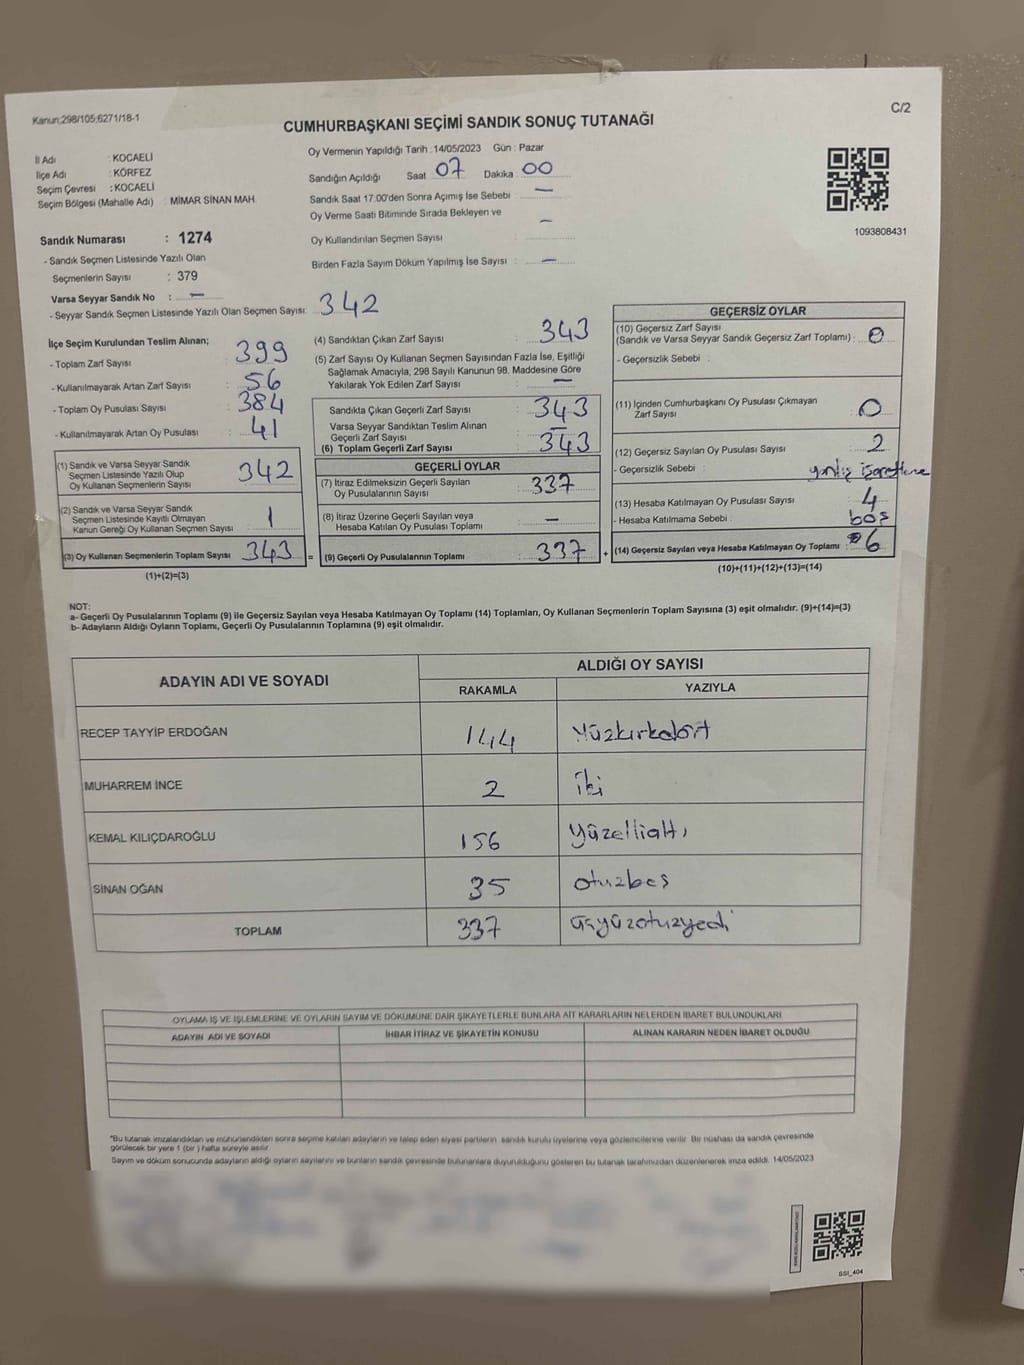 Kanun:298/105;6271/18-1
C/2
CUMHURBAŞKANI SEÇİMİ SANDIK SONUÇ TUTANAĞI
İl Adı : KOCAELİ
İlçe Adı : KÖRFEZ
Seçim Çevresi : KOCAELİ
Seçim Bölgesi (Mahalle Adı) MİMAR SİNAN MAH
Sandık Numarası : 1274
- Sandık Seçmen Listesinde Yazılı Olan
Seçmenlerin Sayısı : 379
Varsa Seyyar Sandık No : —
- Seyyar Sandık Seçmen Listesinde Yazılı Olan Seçmen Sayısı: 342
Oy Vermenin Yapıldığı Tarih : 14/05/2023 Gün : Pazar
Sandığın Açıldığı Saat 07 Dakika : 00
Sandık Saat 17:00'den Sonra Açımış İse Sebebi —
Oy Verme Saati Bitiminde Sırada Bekleyen ve
Oy Kullandırılan Seçmen Sayısı : —
Birden Fazla Sayım Döküm Yapılmış İse Sayısı : —
1093808431
İlçe Seçim Kurulundan Teslim Alınan;
- Toplam Zarf Sayısı : 399
- Kullanılmayarak Artan Zarf Sayısı : 56
- Toplam Oy Pusulası Sayısı : 384
- Kullanılmayarak Artan Oy Pusulası : 41
(1) Sandık ve Varsa Seyyar Sandık
Seçmen Listesinde Yazılı Olup
Oy Kullanan Seçmenlerin Sayısı 342
(2) Sandık ve Varsa Seyyar Sandık
Seçmen Listesinde Kayıtlı Olmayan
Kanun Gereği Oy Kullanan Seçmen Sayısı 1
(3) Oy Kullanan Seçmenlerin Toplam Sayısı 343 =
(1)+(2)=(3)
(4) Sandıktan Çıkan Zarf Sayısı : 343
(5) Zarf Sayısı Oy Kullanan Seçmen Sayısından Fazla İse, Eşitliği
Sağlamak Amacıyla, 298 Sayılı Kanunun 98. Maddesine Göre
Yakılarak Yok Edilen Zarf Sayısı —
Sandıkta Çıkan Geçerli Zarf Sayısı : 343
Varsa Seyyar Sandıktan Teslim Alınan
Geçerli Zarf Sayısı —
(6) Toplam Geçerli Zarf Sayısı : 343
GEÇERLİ OYLAR
(7) İtiraz Edilmeksizin Geçerli Sayılan
Oy Pusulalarının Sayısı : 337
(8) İtiraz Üzerine Geçerli Sayılan veya
Hesaba Katılan Oy Pusulası Toplamı : —
(9) Geçerli Oy Pusulalarının Toplamı : 337 +
GEÇERSİZ OYLAR
(10) Geçersiz Zarf Sayısı
(Sandık ve Varsa Seyyar Sandık Geçersiz Zarf Toplamı) : 0
- Geçersizlik Sebebi :
(11) İçinden Cumhurbaşkanı Oy Pusulası Çıkmayan
Zarf Sayısı : 0
(12) Geçersiz Sayılan Oy Pusulası Sayısı : 2
- Geçersizlik Sebebi : yanlış işaretleme
(13) Hesaba Katılmayan Oy Pusulası Sayısı : 4
- Hesaba Katılmama Sebebi : boş
(14) Geçersiz Sayılan veya Hesaba Katılmayan Oy Toplamı : 6
(10)+(11)+(12)+(13)=(14)
NOT:
a- Geçerli Oy Pusulalarının Toplamı (9) ile Geçersiz Sayılan veya Hesaba Katılmayan Oy Toplamı (14) Toplamları, Oy Kullanan Seçmenlerin Toplam Sayısına (3) eşit olmalıdır. (9)+(14)=(3)
b- Adayların Aldığı Oyların Toplamı, Geçerli Oy Pusulalarının Toplamına (9) eşit olmalıdır.
ADAYIN ADI VE SOYADI ALDIĞI OY SAYISI
RAKAMLA YAZIYLA
RECEP TAYYİP ERDOĞAN 144 Yüzkırkdört
MUHARREM İNCE 2 iki
KEMAL KILIÇDAROĞLU 156 yüzellialtı
SİNAN OĞAN 35 otuzbeş
TOPLAM 337 üçyüzotuzyedi
OYLAMA İŞ VE İŞLEMLERİNE VE OYLARIN SAYIM VE DÖKÜMÜNE DAİR ŞİKAYETLERLE BUNLARA AİT KARARLARIN NELERDEN İBARET BULUNDUKLARI
ADAYIN ADI VE SOYADI İHBAR İTİRAZ VE ŞİKAYETİN KONUSU ALINAN KARARIN NEDEN İBARET OLDUĞU
*Bu tutanak imzalandıktan ve mühürlendikten sonra seçime katılan adayların ve talep eden siyasi partilerin sandık kurulu üyelerine veya gözlemcilerine verilir. Bir nüshası da sandık çevresinde
görülecek bir yere 1 (bir) hafta süreyle asılır.
Sayım ve döküm sonucunda adayların aldığı oyların sayılarını ve bunların sandık çevresinde bulunanlara duyurulduğunu gösteren bu tutanak tarafımızdan düzenlenerek imza edildi. 14/05/2023
SSI_404